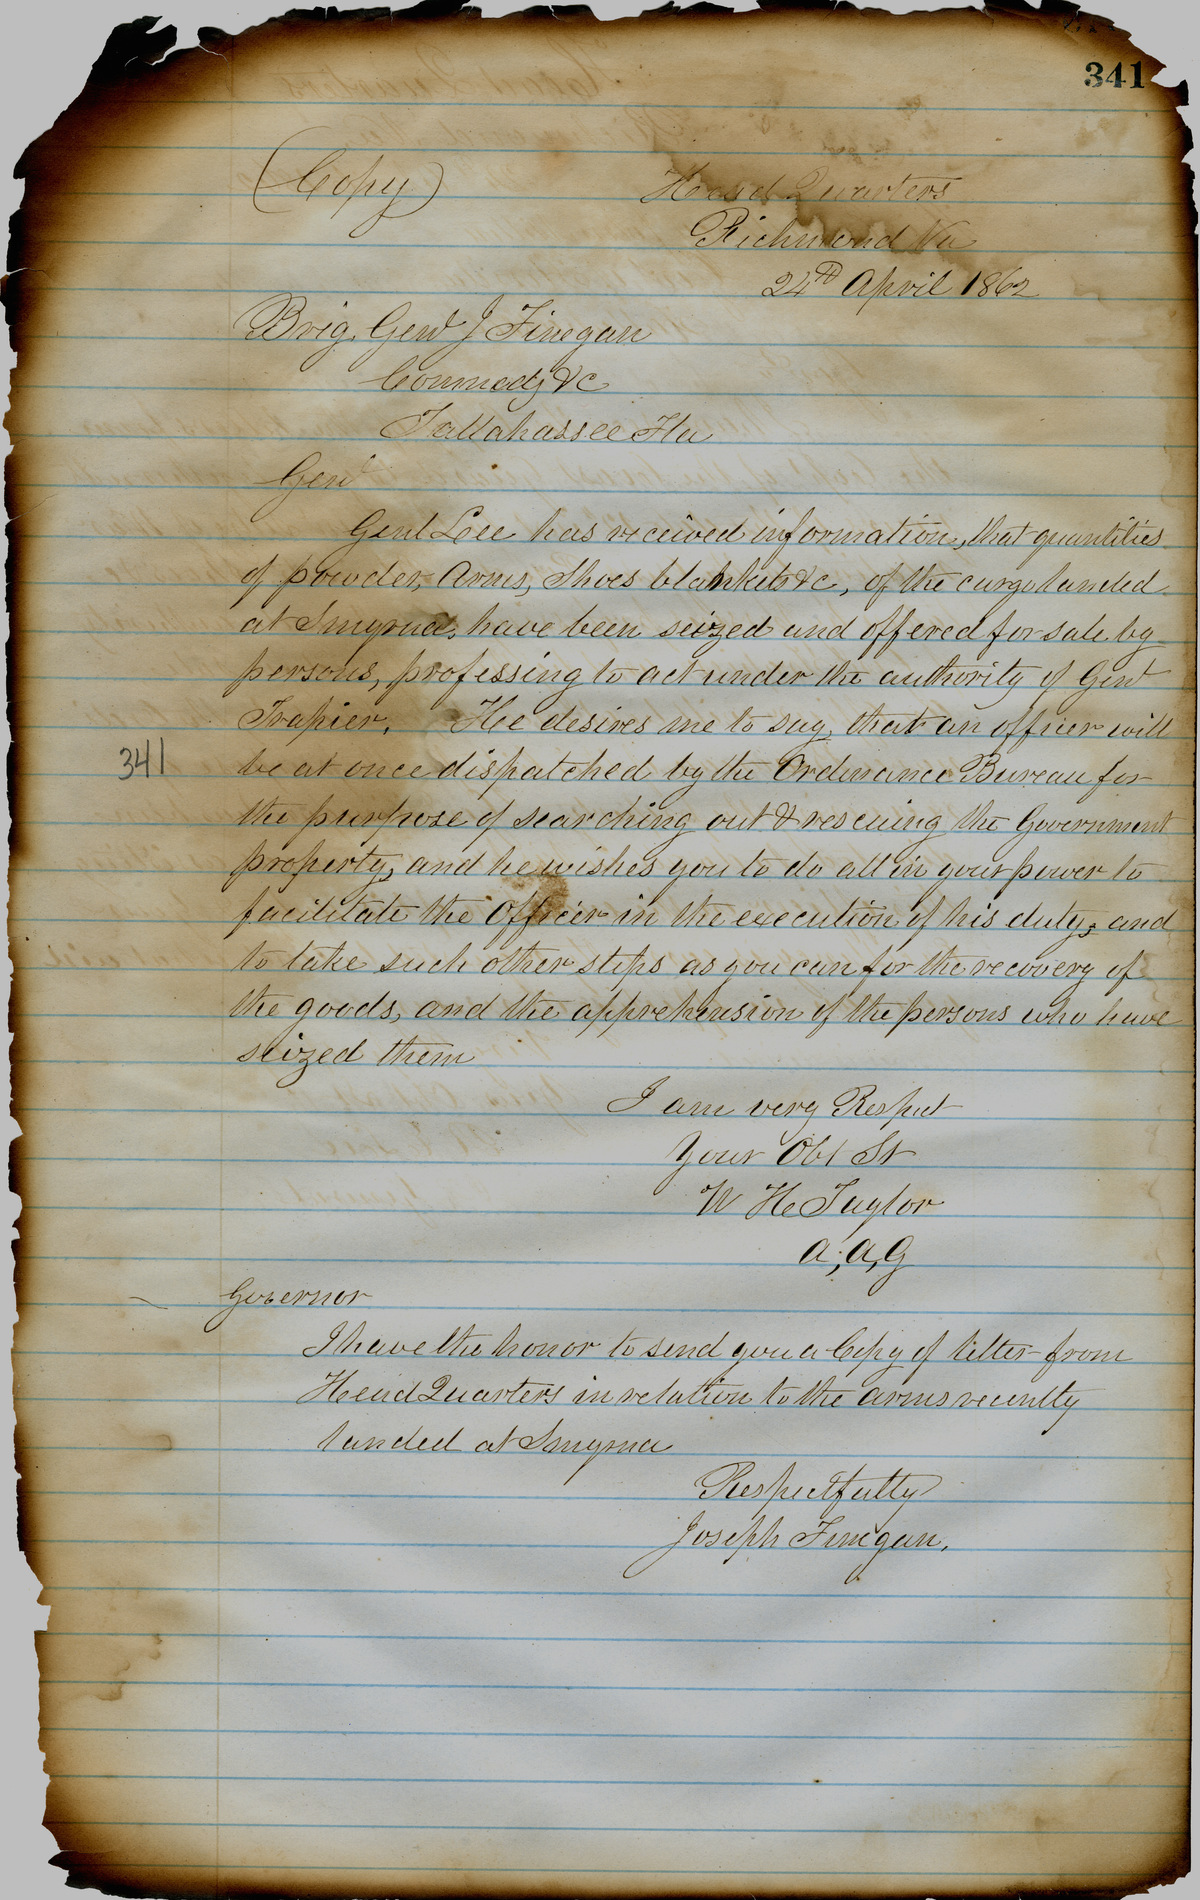 341
(Copy)
Head Quarters
Richmond Va
24th April 1862
Brig. Genl J Finegan
Commdg &c
Tallahassee Fla
Genl
Genl Lee has received information, that quantities
of powder, Arms, Shoes blankets &c, of the cargo landed
at Smyrna, have been seized and offered for sale by
persons, professing to act under the authority of Genl
Trapier. He desires me to say, that an officer will
341
be at once dispatched by the Ordinance Bureau for
the purpose of searching out & rescuing the Government
property, and he wishes you to do all in your power to
facilitate the Officer in the execution of his duty, and
to take such other steps as you can for the recovery of
the goods, and the apprehension of the persons who have
seized them
I am very Respect
Your Obt St
W H Taylor
A, A, G
Governor
I have the honor to send you a Copy of letter from
Head Quarters in relation to the arms recently
landed at Smyrna
Respectfully
Joseph Finegan.